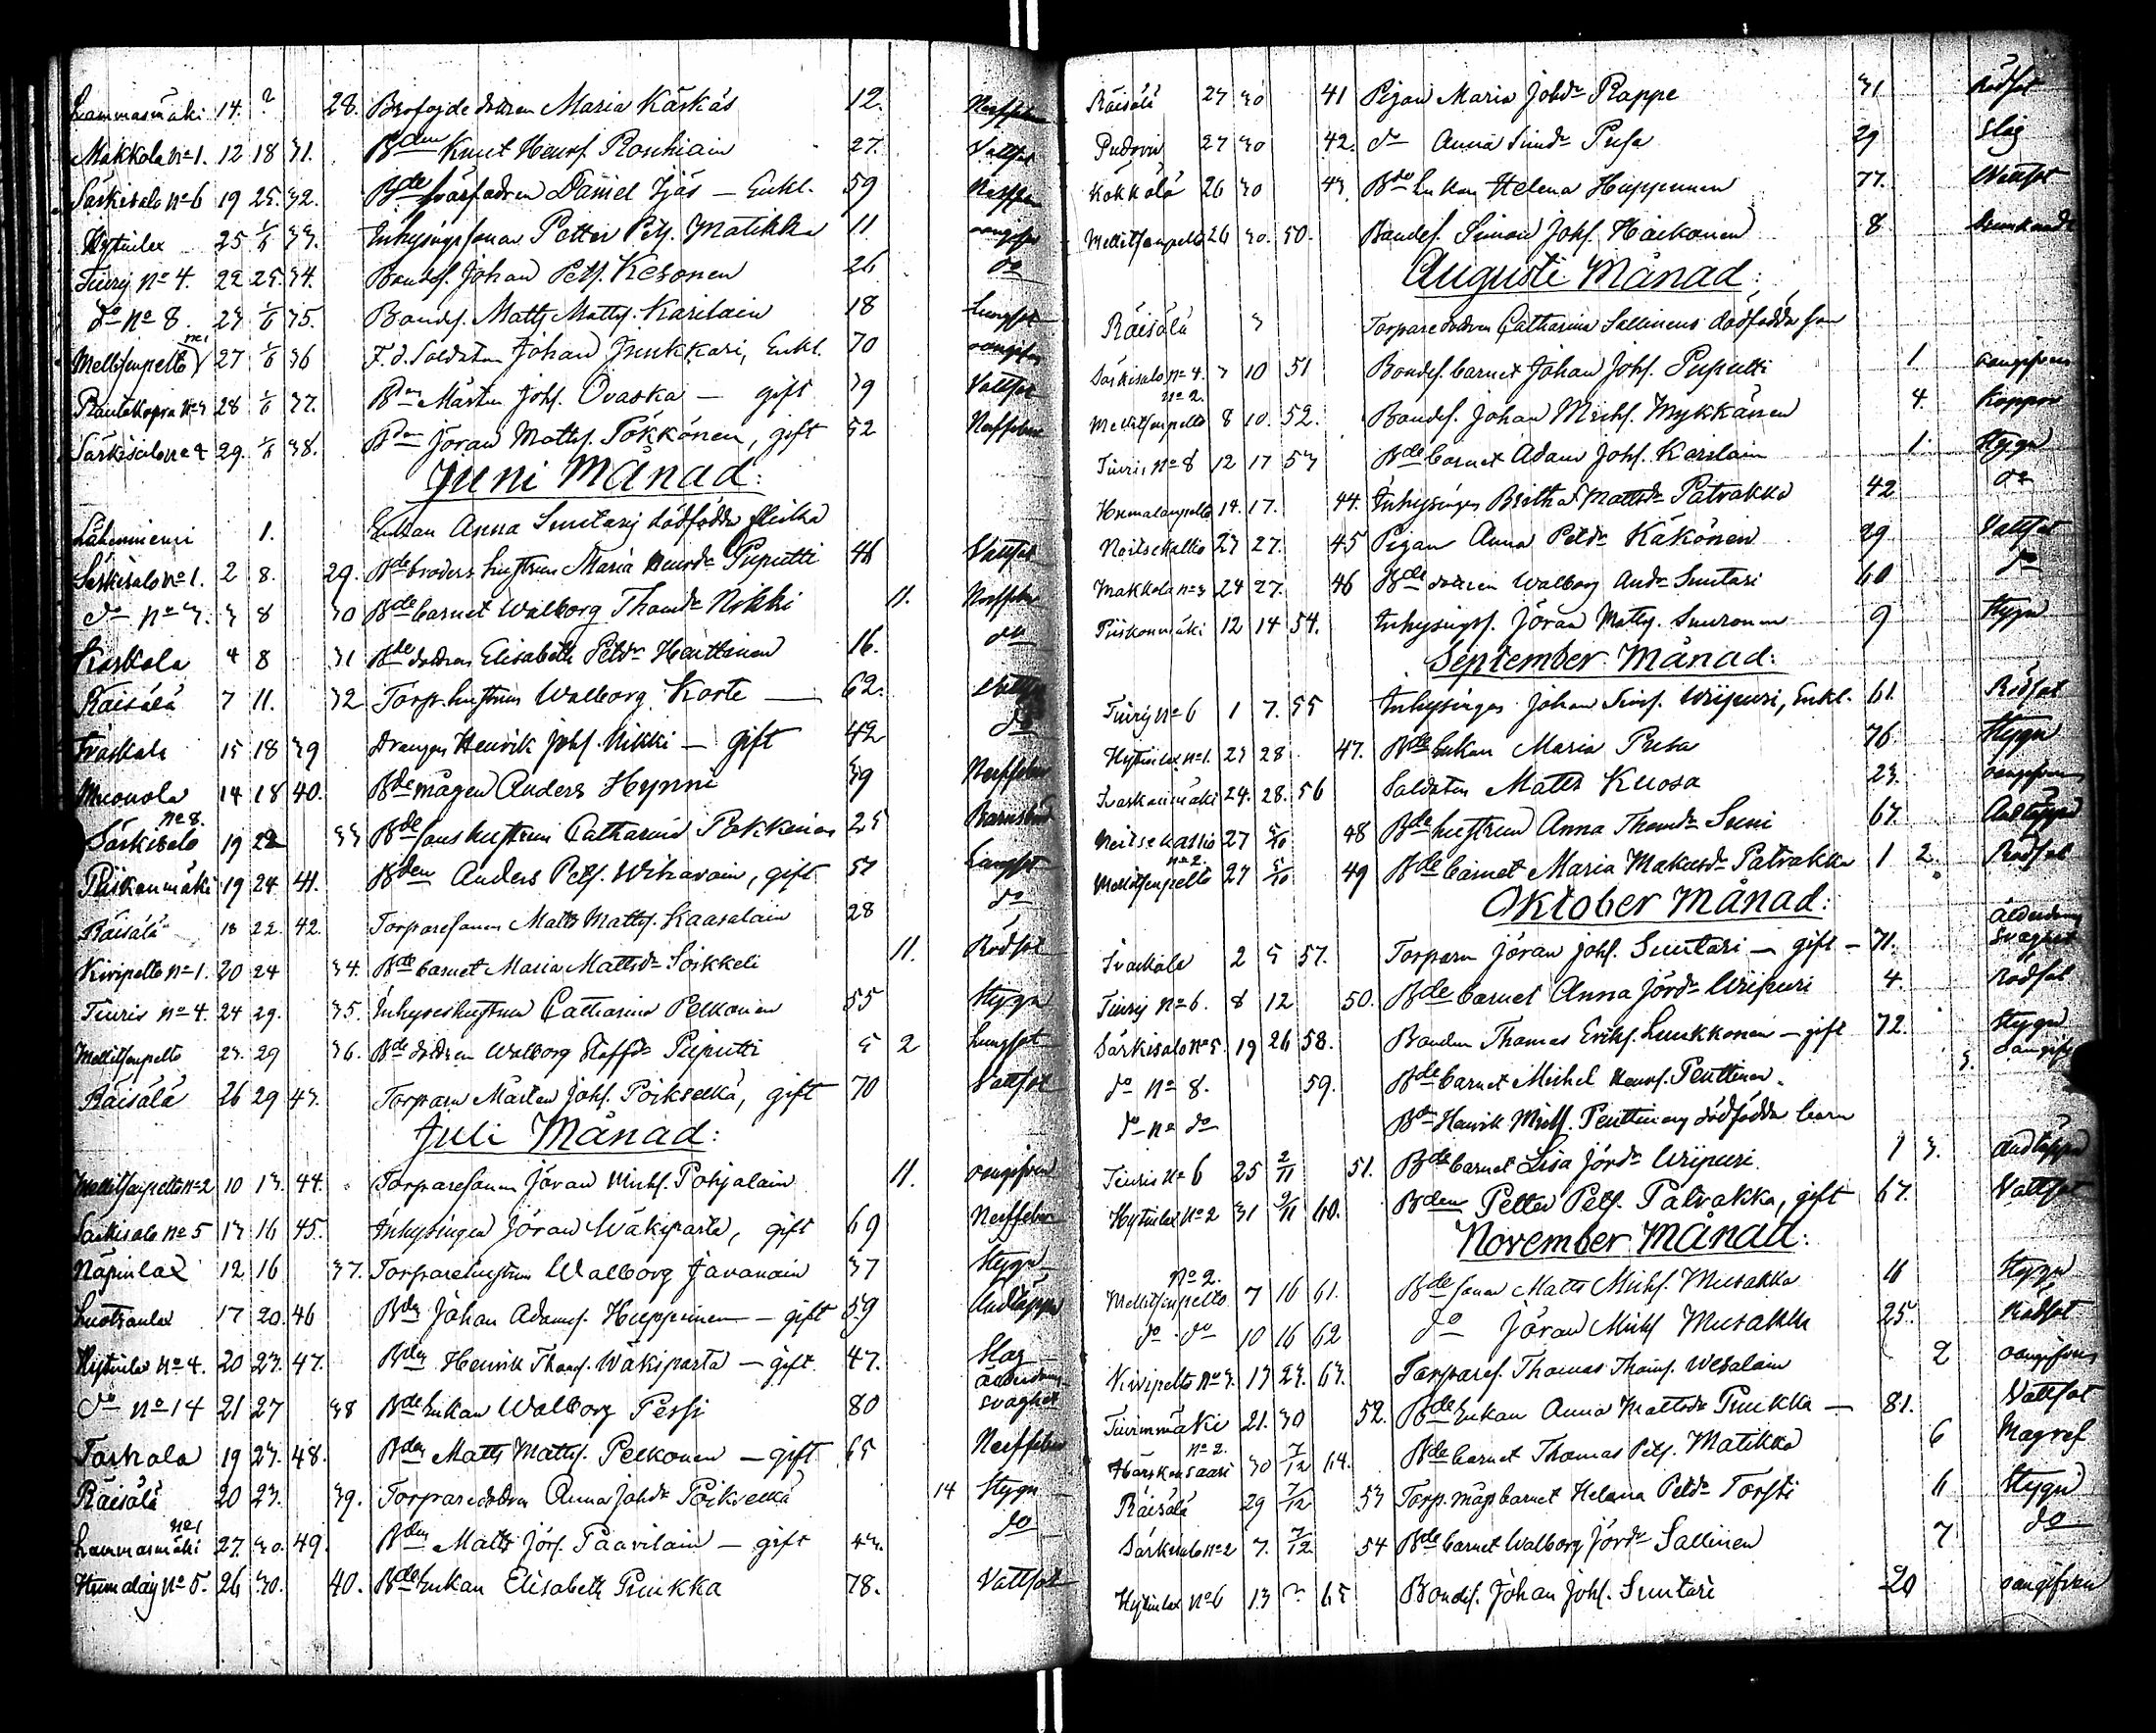 Lammasmäki 14. ? 28. dottren Maria Käskäs 12. Nerffeber
Makkola No 1. 12 18 31. Bden Knut Henrs. Roschiain 27. Vattsot
Särkisalo No 6 19 25. 32. Bde svärfadren Daniel Ijäs — Enkl. 59 Nerffeber
Hytinlax 25 1/6 33. Inhysinge sonen Petter Pets. Matikka 11. oangifven
Tiurij No 4. 22 25. 34. Bondes. Johan Pets. Kesonen 26 do
do No 8. 23 1/6 35. Bondes. Matts Matts. Karilain 18 Lungsot
Mellitsenpelto No 1 27 1/6 36 F. d. Soldaten Johan Junkkari, Enkl. 70 oangifven
Rautakopra No 3 28 1/6 37. Bden Mårten Johs. Ovaska — gift 39 Vattsot
Särkisalo No 4 29. 1/6 38. Bden Jöran Matts. Pökkönen, gift 52 Nerffeber
Juni Månad:
Lähenniemi 1. Enkan Anna Suntarij dödfödda flicka
Särkisalo No 1. 2 8. 29. Bde broders hustrun Maria Henrdr Puputti 46 Vattsot
do No 3. 3 8 30 Bde barnet Walborg Thomdr Nikki 11. Nerffeber
Kaskola 4 8 31 Bde dottren Elisabeth Petdr Henttonen 16. do
Räisälä 7 11. 32 Torp. hustrun Walborg Korte — 62. Vattsot
Ivaskala 15 18 39 drängen Henrik Johs. Nikki — gift 42 do
Muonola 14 18 40. Bde mågen Anders Hynni 39 Nerffeber
Särkisalo No 8. 19 22 33 Bde sons hustrun Catharina Pokkinen 25 Barnsbörd
Piiskonmäki 19 24 41. Bden Anders Pets. Wihavain, gift 57 Lungsot
Räisälä 18 22. 42. Torparesonen Matts Matts. Kaasalain 28 do
Kivipelto No 1. 20 24 34. Bde barnet Maria Mattsdr Soikkeli 11. Rödsot
Tiuris No 4. 24 29. 35. Inhyses hustrun Catharina Pelkonen 55 Stygn
Mellitsenpelto 23. 29 36. Bde dottren Walborg Staffdr Puputti 5 2 Lungsot
Räisälä 26 29 43. Torparn Mårten Johs. Poikselkä, gift 70 Vattsot
Juli Månad:
Mellitsenpelto No 2 10 13. 44. Torparesonen Jöran Michs. Pohjalain 11. oangifven
Särkisalo No 5 13 16 45. Inhysingen Jöran Wäkiparta, gift 69 Nerffeber
Näpinlax 12 16 37. Torparehustrun Walborg Javanain 37 Stygn
Luotsanlax 17 20. 46 Bden Johan Adams. Huppunen — gift 59 Andtäppa
Hytinlax No 4. 20 23. 47. Bden Henrik Thoms. Wäkiparta — gift 47. Slag
do No 14 21 27 38 Bde Enkan Walborg Pessi 80 ålderdoms svaghet
Taskala 19 23. 48. Bden Matts Matts. Pelkonen — gift 65 Nerffeber
Räisälä 20 23. 39. Torparedottren Anna Johdr Poikselkä 14 Stygn
Lammasmäki No 1 27. 30. 49. Bden Matts Jörs. Paavilain — gift 43. do
Humalaij No 5. 26 30. 40. Bde Enkan Elisabeth Punkka 78. Vattsot
Räisälä 27 30 41 Pigan Maria Johdr Rappe 31 Rödsot
27 30 42. do Anna Simdr Pusa 29 Slag
Kökkölä 26 30 43. Bde Enkan Helena Huppunen 77. Vattsot
Mellitsenpelto 26 30. 50. Bondes. Simon Johs. Haikonen 8.
Augusti Månad:
Räisälä 3 Torparedottren Catharina Sallinens dödfödda son
Särkisalo No 4. 3 10 51 Bondes. barnet Johan Johs. Puputti 1. oangifven
Mellitsenpelto No 2. 8 10. 52. Bondes. Johan Michs. Mykkänen 4. Koppor
Tiuris No 8 12 17 53 Bde barnet Adam Johs. Karilain 1. Stygn
Humalanpelto 14. 17. 44. Inhysinges Britha Mattsdr Patrakka 42 do
Noitsekallio 23 27. 45 Pigan Anna Petdr Käkönen 29 Vattsot
Makkola No 3 24 27. 46 Bde dottren Walborg Andr Suntari 60 do
Piiskonmäki 12 14 54. Inhysings. Jöran Matts. Suuronen 9 Stygn
September Månad:
Tiurij No 6 1 7. 55 Inhysinges Johan Sims. Wiipuri, Enkl. 61. Rödsot
Hytinlax No 1. 23 28 47. Bde Enkan Maria Pusa 76. Stygn
Ivaskanmäki 24. 28. 56 Soldaten Matts Kuosa 23. oangifven
Noitsekallio 27 5/10 48 Bde hustrun Anna Thomdr Suni 67. Andtäppa
Mellitsenpelto No 2. 27 5/10 49 Bde barnet Maria Makusdr Patrakka 1 2. Rödsot
Oktober Månad:
Ivaskala 2 5 57. Torparn Jöran Johs. Suntari — gift — 71. ålderdoms svaghet
Tiurij No 6. 8 12 50. Bde barnet Anna Jördr Wiipuri 4. Rödsot
Särkisalo No 5. 19 26 58. Bonden Thomas Eriks. Luukkonen — gift 72. Stygn
do No 8. 59. Bde barnet Michel Henrs. Penttinen. 3. oangifven
do No do Bde Henrik Michs. Penttinens dödfödda barn
Tiuris No 6 25 2/11 51. Bde barnet Lisa Jördr Wiipuri 1 3. Andtäppa
Hytinlax No 2 31 9/11 60. Bden Petter Pets. Patrakka, gift 67. Vattsot
November Månad:
Mellitsenpelto No 2. 7 16 61. Bde sonen Matts Michs. Musakka 11 Stygn
do do 10 16 62 do Jöran Michs Musakka 25. Rödsot
Kivipelto No 3. 13 23. 63. Torpares. Thomas Thoms. Wesalain 2 oangifven
Tiurinmäki 21. 30 52. Bde Enkan Anna Mattsdr Punkka — 81. Vattsot
Härskönsaari No 2. 30 7/12 64. Bde barnet Thomas Pets. Matikka 6 Magref
Räisälä 29 7/12 53 Torp. mågs barnet Helena Petdr Torsti 11 Stygn
Särkisalo No 2 7. 7/12 54 Bde barnet Walborg Jördr Sallinen 7 do
Hytinlax No 6 13 ? 65 Bondes. Johan Johs. Suntari 20 oangifven